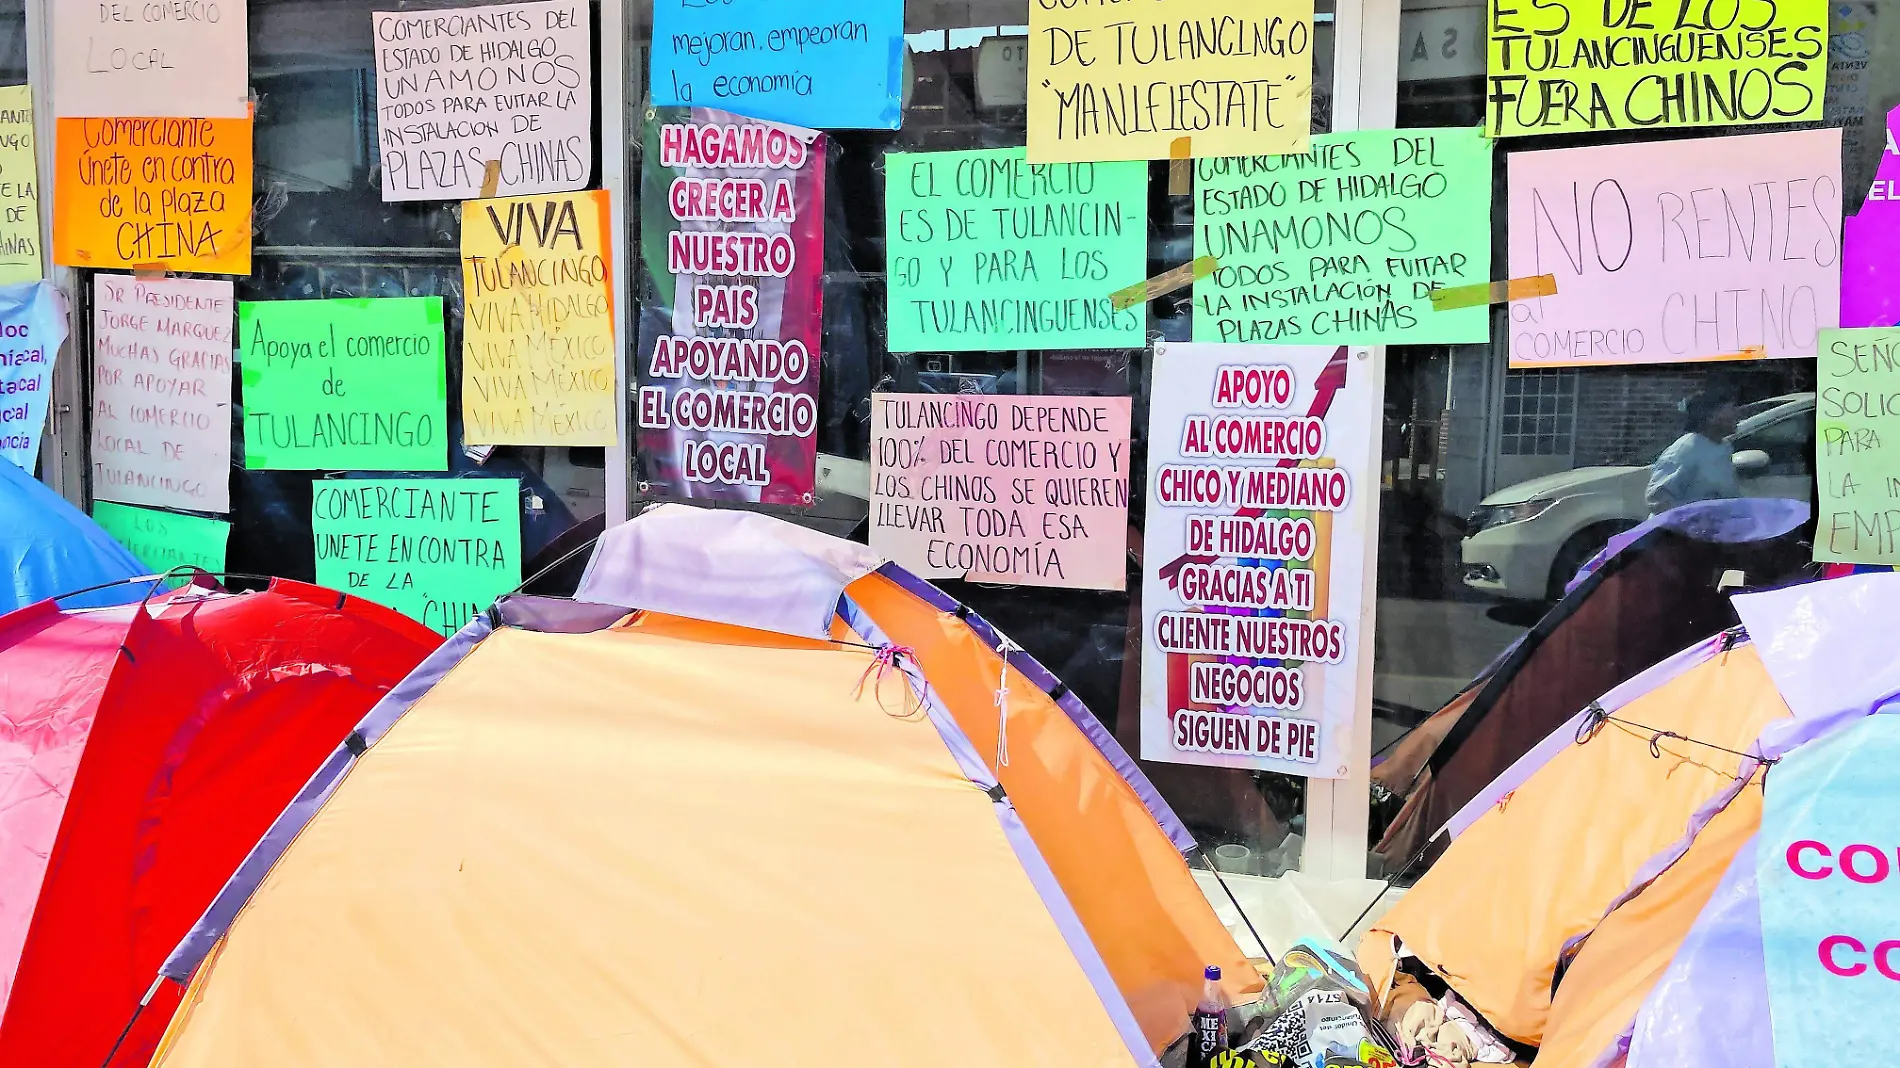 DEL COMERCIO
LOCAL
COMERCIANTES DEL
ESTADO DE HIDALGO
UNAMONOS
TODOS PARA EVITAR LA
INSTALACION DE
PLAZAS CHINAS
mejoran, empeoran
la economía
DE TULANCINGO
"MANIFIESTATE"
ES DE LOS
TULANCINGUENSES
FUERA CHINOS
DE
Comerciante
Únete en contra
de la plaza
CHINA
VIVA
TULANCINGO
VIVA HIDALGO
VIVA MÉXICO
VIVA MÉXICO
VIVA MÉXICO
HAGAMOS
CRECER A
NUESTRO
PAIS
APOYANDO
EL COMERCIO
LOCAL
EL COMERCIO
ES DE TULANCIN-
GO Y PARA LOS
TULANCINGUENSES
COMERCIANTES DEL
ESTADO DE HIDALGO
UNAMONOS
TODOS PARA EVITAR
LA INSTALACION DE
PLAZAS CHINAS
NO RENTES
al
COMERCIO CHINO
EL
SR PRESIDENTE
JORGE MARQUEZ
MUCHAS GRACIAS
POR APOYAR
AL COMERCIO
LOCAL DE
TULANCINGO
Apoya el comercio
de
TULANCINGO
TULANCINGO DEPENDE
100% DEL COMERCIO Y
LOS CHINOS SE QUIEREN
LLEVAR TODA ESA
ECONOMÍA
APOYO
AL COMERCIO
CHICO Y MEDIANO
DE HIDALGO
GRACIAS A TI
CLIENTE NUESTROS
NEGOCIOS
SIGUEN DE PIE
PARA
LA
LOS
COMERCIANTES
COMERCIANTE
UNETE EN CONTRA
DE LA
MEXICA
5714